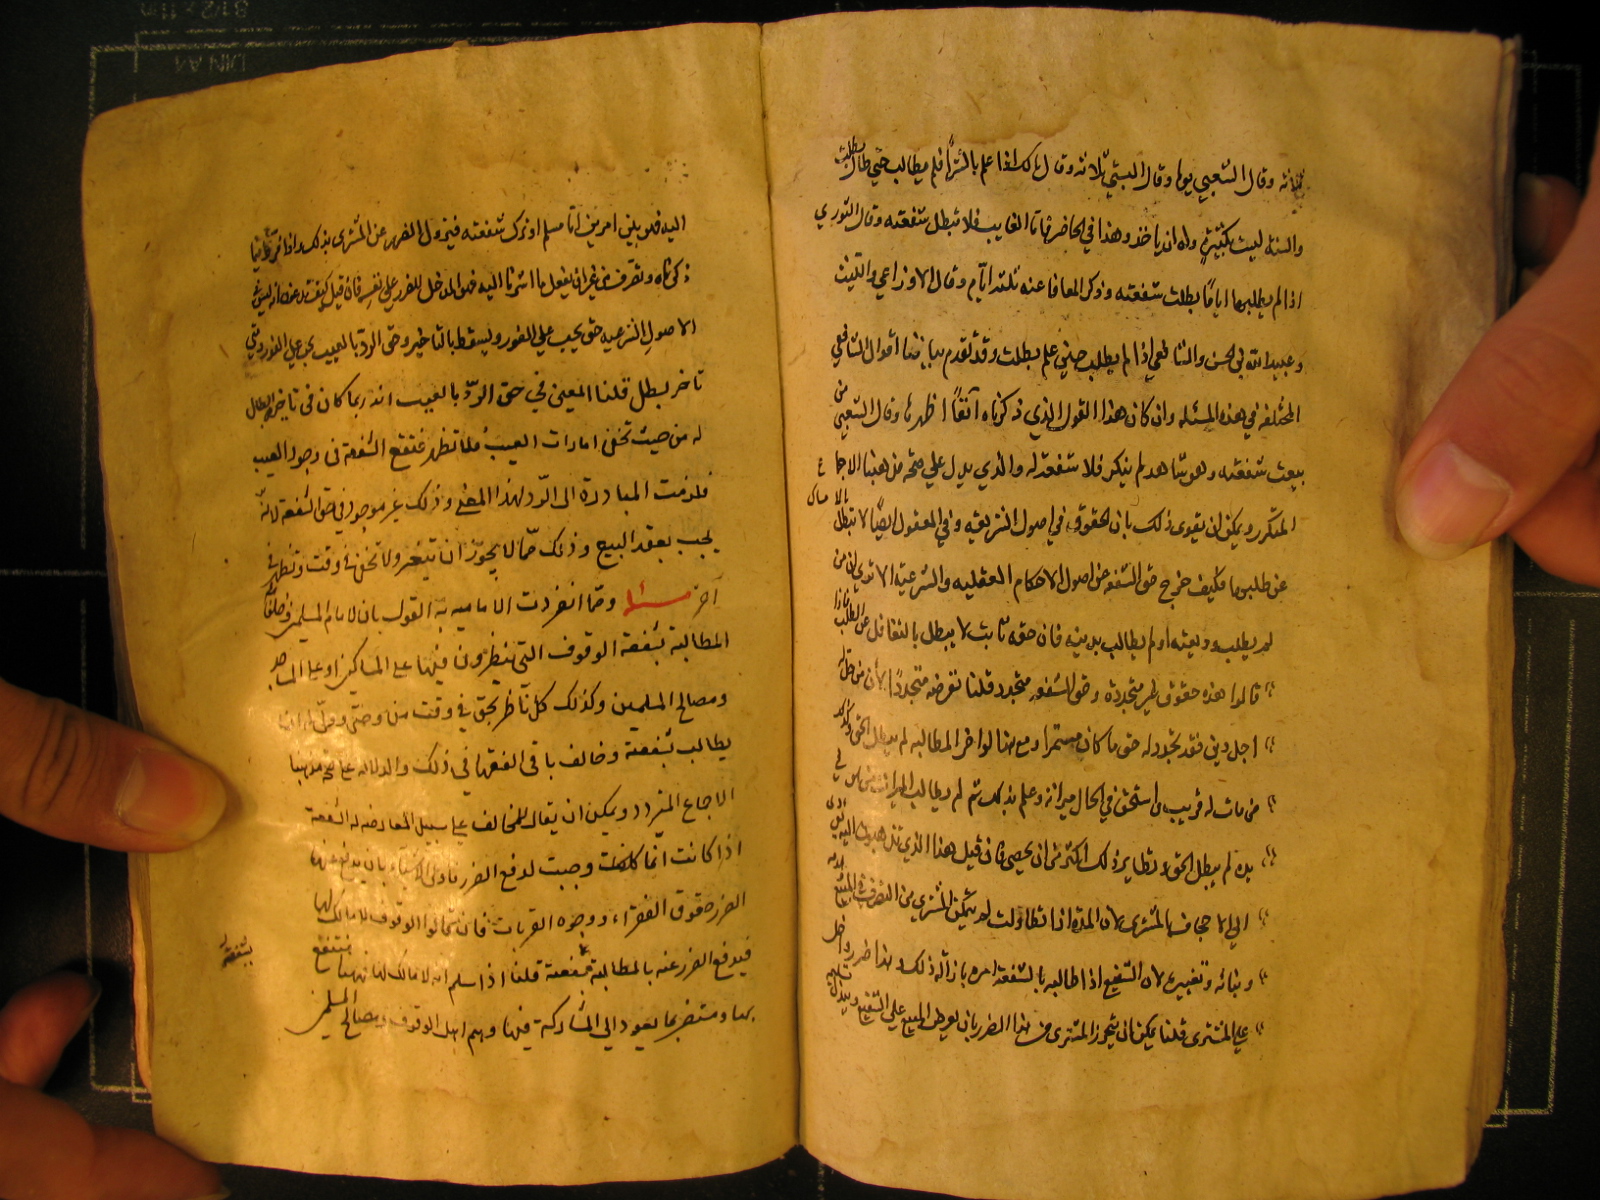 ثلاثة وقال الشعبي يوما وقال البستي ثلاثة وقال مالك اذا علم بالشراء فلم يطالب حتى طال بطلت
والسنة ليست بكثيرة وله ان ياخذ وهذا في الحاضر فاما الغايب فلا تبطل شفعته وقال الثوري
اذا لم يطلبها اياما بطلت شفعته وذكر المعافا عنه ثلثة ايام وقال الاوزاعي والليث
وعبيد الله بن الحسن والشافعي اذا لم يطلب حين علم بطلت وقد تقدم بياننا اقوال الشافعي
المختلفة في هذه المسئلة وان كان هذا القول الذي ذكرناه آنفا اظهرها وقال الشعبي من
بيعت شفعته وهو شاهد لم ينكر فلا شفعة له والذي يدل على صحة مذهبنا الاجماع
المتكرر ويمكن ان يقوى ذلك بان الحقوق في اصول الشريعة وفي المعقول ايضا لا تبطل بالامساك
عن طلبها فكيف خرج حق الشفعة عن اصول الاحكام العقلية والشرعية الا ترى ان من
لم يطلب وديعته او لم يطالب بدينه فان حقه ثابت لا يبطل بالتغافل عن الطلب فاذا
قالوا هذه حقوق غير متجددة وحق الشفعة متجدد قلنا نفرضه متجددا لأن من حل له
اجل دين فقد تجدد له حق ما كان مستمرا ومع هذا لو اخر المطالبة لم يبطل الحق وكذلك
من مات له قريب واستحق في الحال ميراثه وعلم بذلك ثم لم يطالب الميراث من هو في
يده لم يبطل الحق ونظاير ذلك اكثر من ان يحصى فان قيل هذا الذي تذهبون اليه يؤدي
الى الاجحاف بالمشتري لان المدة اذا تطاولت لم يتمكن المشتري من التصرف في المبيع
وبنائه وتغييره لان الشفيع اذا طالبه بالشفعة امره بازالة ذلك وهذا ضرر داخل
على المشتري قلنا يمكن ان يتحرز المشتري من هذا الضرر بان يعرض المبيع على الشفيع ويبذل تسليمه
اليه فهو بين امرين اما تسلم او ترك شفعته فيزول الضرر عن المشتري بذلك واذا فرط فيما
ذكرناه وتصرف من غير ان يفعل ما اشرنا اليه فهو المدخل للضرر على نفسه فان قيل كيف تدعون انه ليس في
الاصول الشرعية حق يجب على الفور ويسقط بالتاخير وحق الرد بالعيب يجب على الفور ومتى
تاخر بطل قلنا المعنى في حق الرد بالعيب انه ربما كان في تاخيره ابطال
له من حيث تخفى امارات العيب فلا تظهر فتقع الشبهة في وجود العيب
فلزمت المبادرة الى الرد لهذا المعنى وذلك غير موجود في حق الشفعة لانه
يجب بعقد البيع وذلك مما لا يجوز ان يتغير ولا تخفى في وقت وتظهر في
آخر مسئلة ومما انفردت الامامية به القول بان لامام المسلمين وخلفائه
المطالبة بشفعة الوقوف التي ينظرون فيها على المساكين او على المساجد
ومصالح المسلمين وكذلك كل ناظر بحق في وقف من وصي وولي له ان
يطالب بشفعة وخالف باقي الفقها في ذلك والدلالة على صحة مذهبنا
الاجماع المتردد ويمكن ان يقال للمخالف على سبيل المعارضة له الشفعة
اذا كانت انما وجبت لدفع الضرر فاولى الاشياء بان يدفع عنها
الضرر حقوق الفقراء ووجوه القربات فان قالوا الوقوف لا مالك لها
فيدفع الضرر عنه بالمطالبة بشفعته قلنا اذا سلم انه لا مالك لها فهيهنا منتفع
بها ومستضر بما يعود الى المشاركة فيها وهم اهل الوقوف ومصالح المسلمين
بشفعته